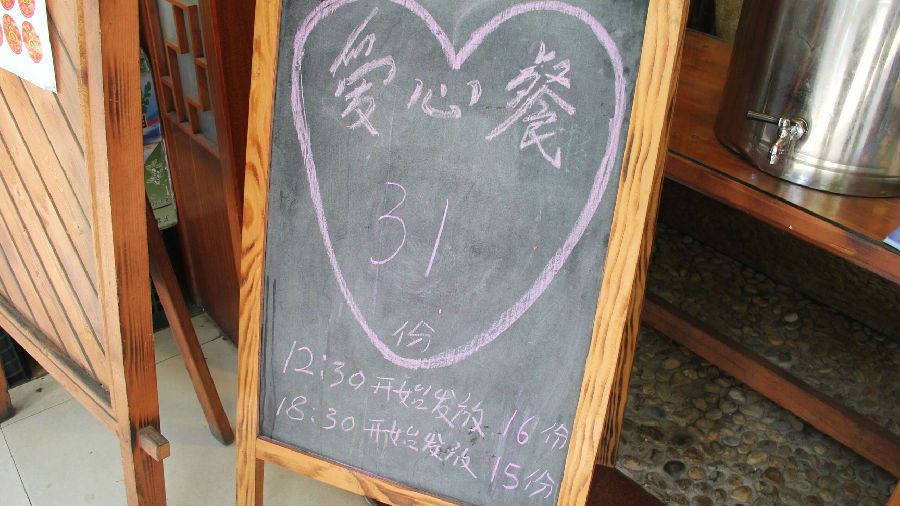 爱心餐
31
份
12:30开始发放 16份
18:30开始发放 15份